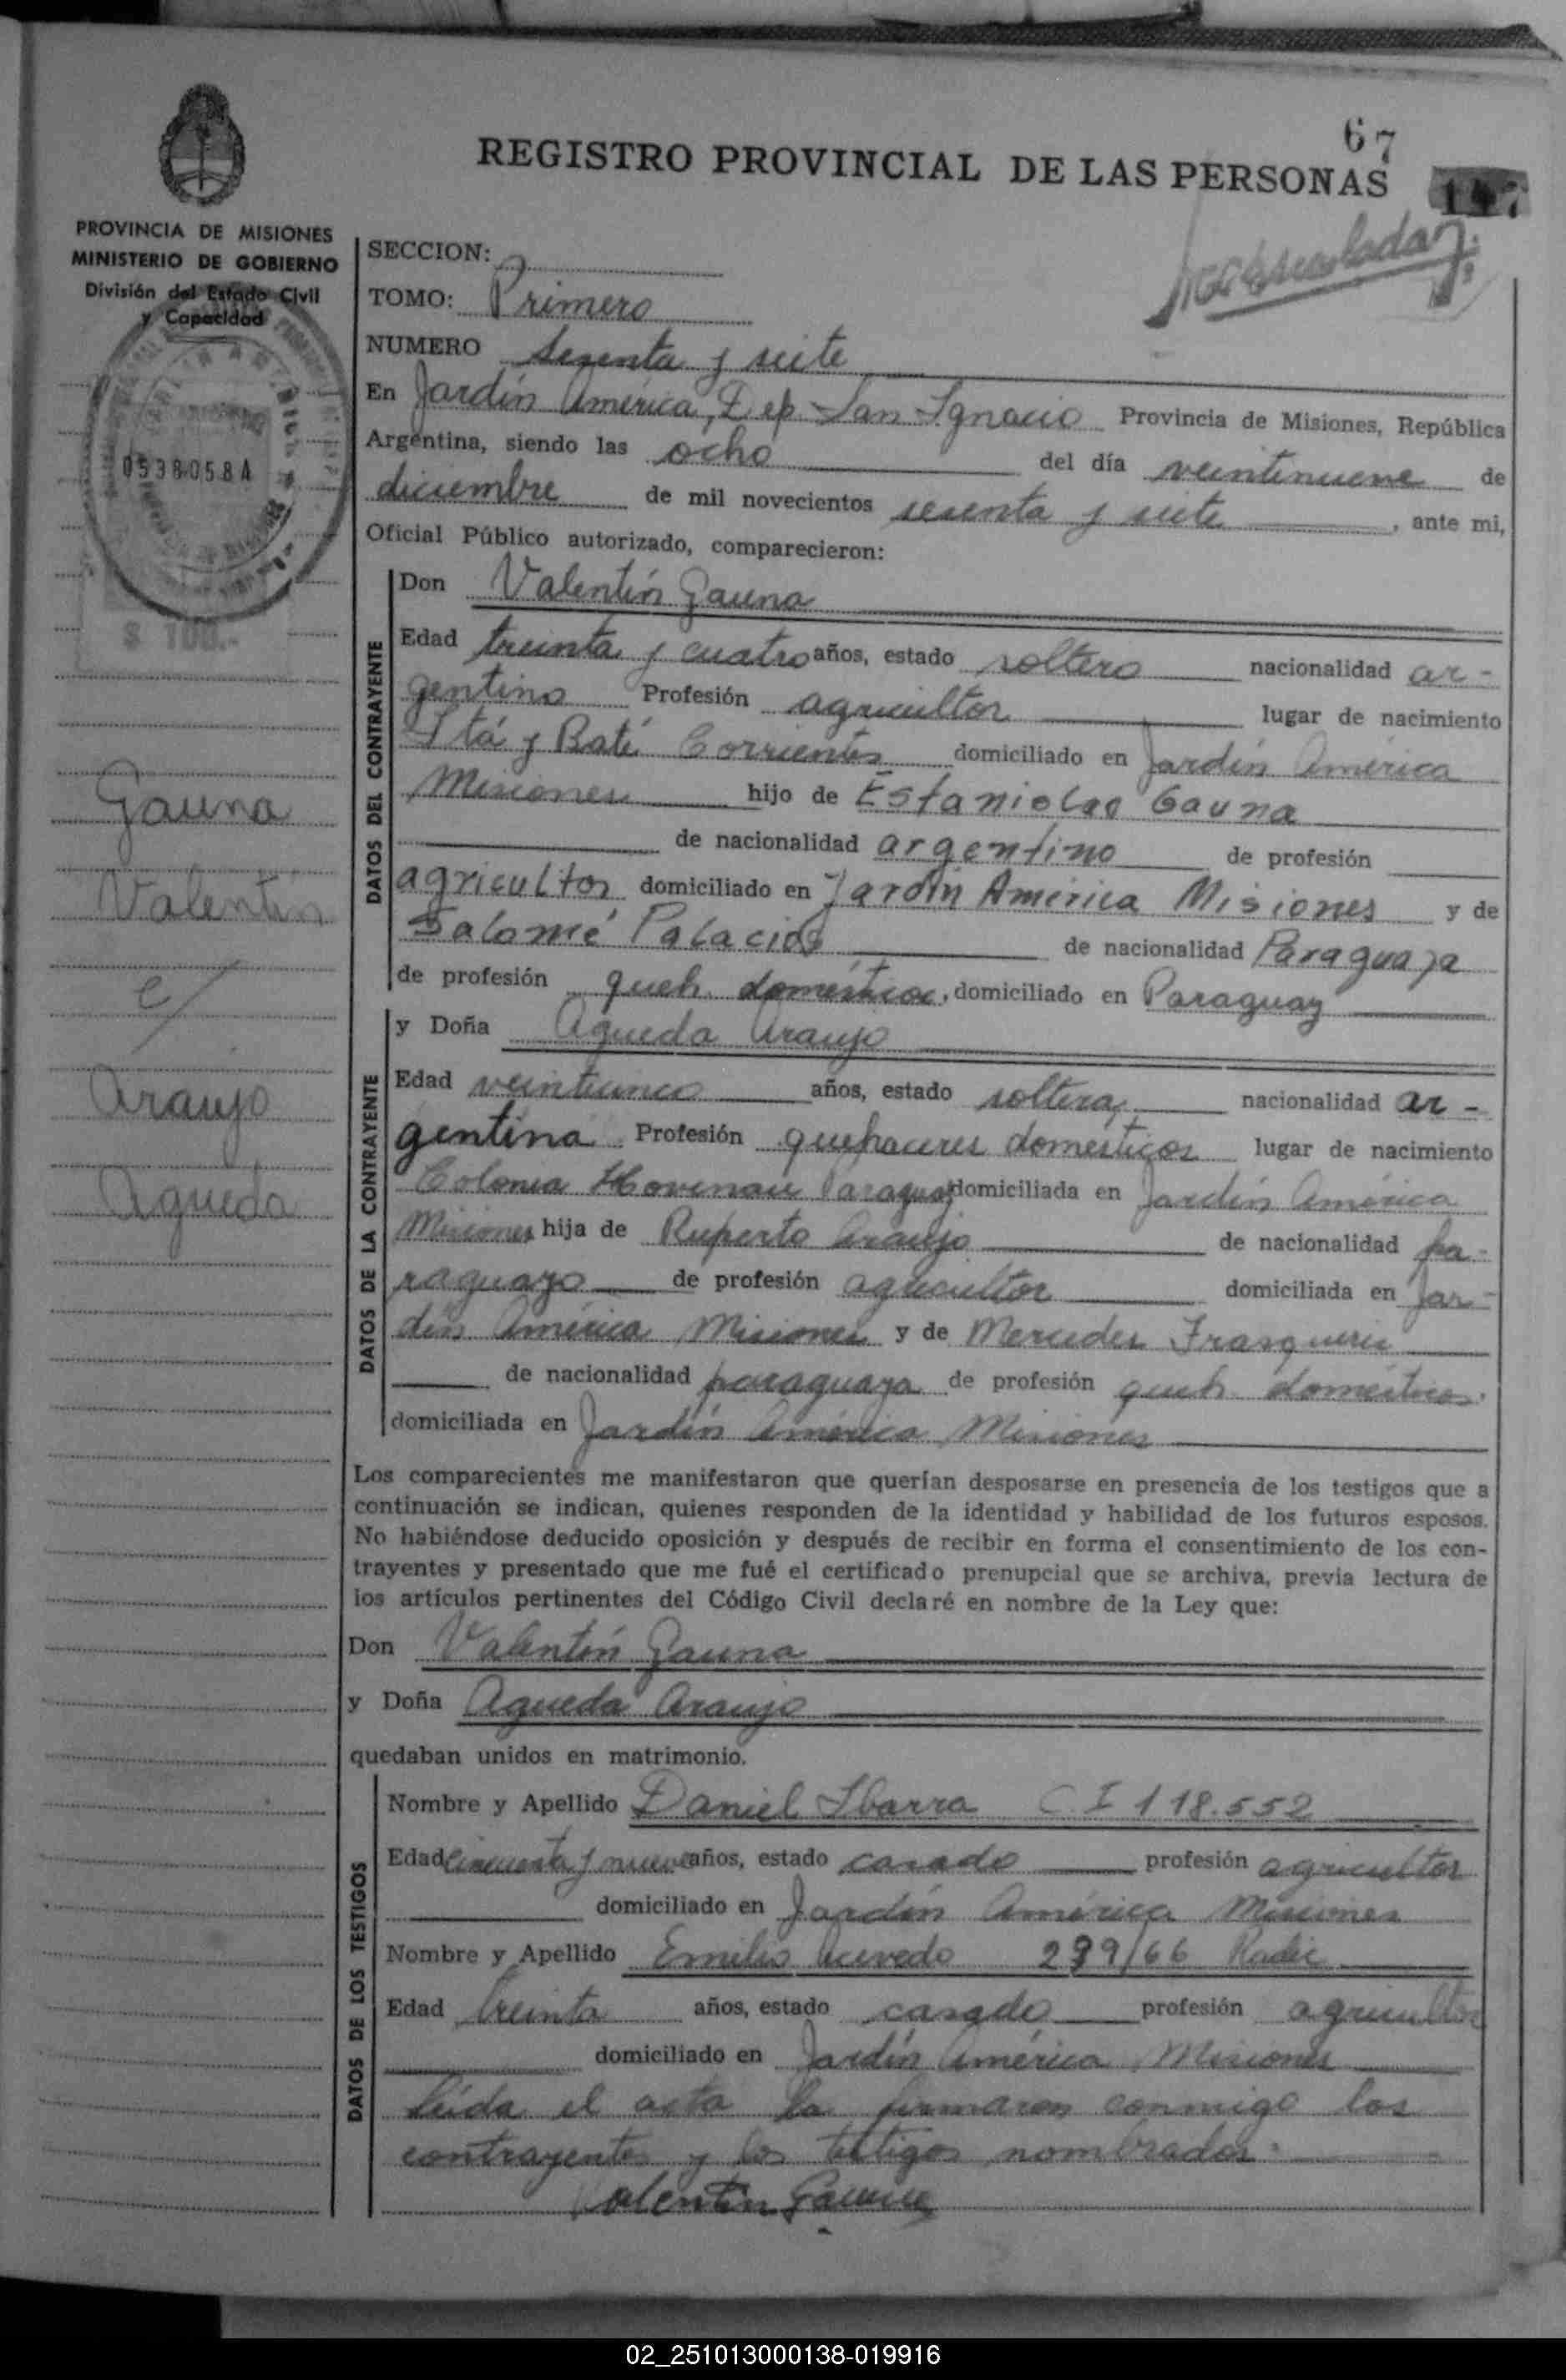 67
REGISTRO PROVINCIAL DE LAS PERSONAS
147
PROVINCIA DE MISIONES
MINISTERIO DE GOBIERNO
División del Estado Civil
y Capacidad
0538058A
$ 100.-
SECCION:
TOMO: Primero
NUMERO Sesenta y siete
En Jardín América, Dep. San Ignacio Provincia de Misiones, República
Argentina, siendo las ocho del día veintinueve de
diciembre de mil novecientos sesenta y siete, ante mi,
Oficial Público autorizado, comparecieron:
DATOS DEL CONTRAYENTE
Don Valentín Gauna
Edad treinta y cuatro años, estado soltero nacionalidad ar-
gentino Profesión agricultor lugar de nacimiento
Itá y Baté Corrientes domiciliado en Jardín América
Misiones hijo de Estanislao Gauna
de nacionalidad argentino de profesión
agricultor domiciliado en Jardín América Misiones y de
Salomé Palacios de nacionalidad Paraguaya
de profesión queh. domésticos, domiciliado en Paraguay
Gauna
Valentín
c/
Araujo
Agueda
DATOS DE LA CONTRAYENTE
y Doña Agueda Araujo
Edad veinticinco años, estado soltera, nacionalidad ar-
gentina Profesión quehaceres domésticos lugar de nacimiento
Colonia Hovenau Paraguay domiciliada en Jardín América
Misiones hija de Ruperto Araujo de nacionalidad pa-
raguayo de profesión agricultor domiciliada en Jar-
dín América Misiones y de Mercedes Frasquerie
de nacionalidad paraguaya de profesión queh. domésticos.
domiciliada en Jardín América Misiones
Los comparecientes me manifestaron que querían desposarse en presencia de los testigos que a
continuación se indican, quienes responden de la identidad y habilidad de los futuros esposos.
No habiéndose deducido oposición y después de recibir en forma el consentimiento de los con-
trayentes y presentado que me fué el certificado prenupcial que se archiva, previa lectura de
los artículos pertinentes del Código Civil declaré en nombre de la Ley que:
Don Valentín Gauna
y Doña Agueda Araujo
quedaban unidos en matrimonio.
DATOS DE LOS TESTIGOS
Nombre y Apellido Daniel Ibarra C. I 118.552
Edad cincuenta y nueve años, estado casado profesión agricultor
domiciliado en Jardín América Misiones
Nombre y Apellido Emilio Acevedo 299/66 Radic
Edad treinta años, estado casado profesión agricultor
domiciliado en Jardín América Misiones
leída el acta la firmaron conmigo los
contrayentes y los testigos nombrados.
Valentin Gauna
02_251013000138-019916